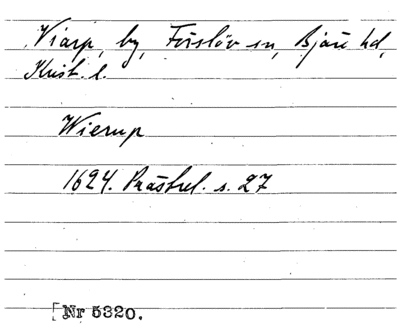 Viarp, by, Förslöv sn, Bjäre hd,
Krist. l.
Wierup
1624. Prästrel. s. 27
[Nr 5320.